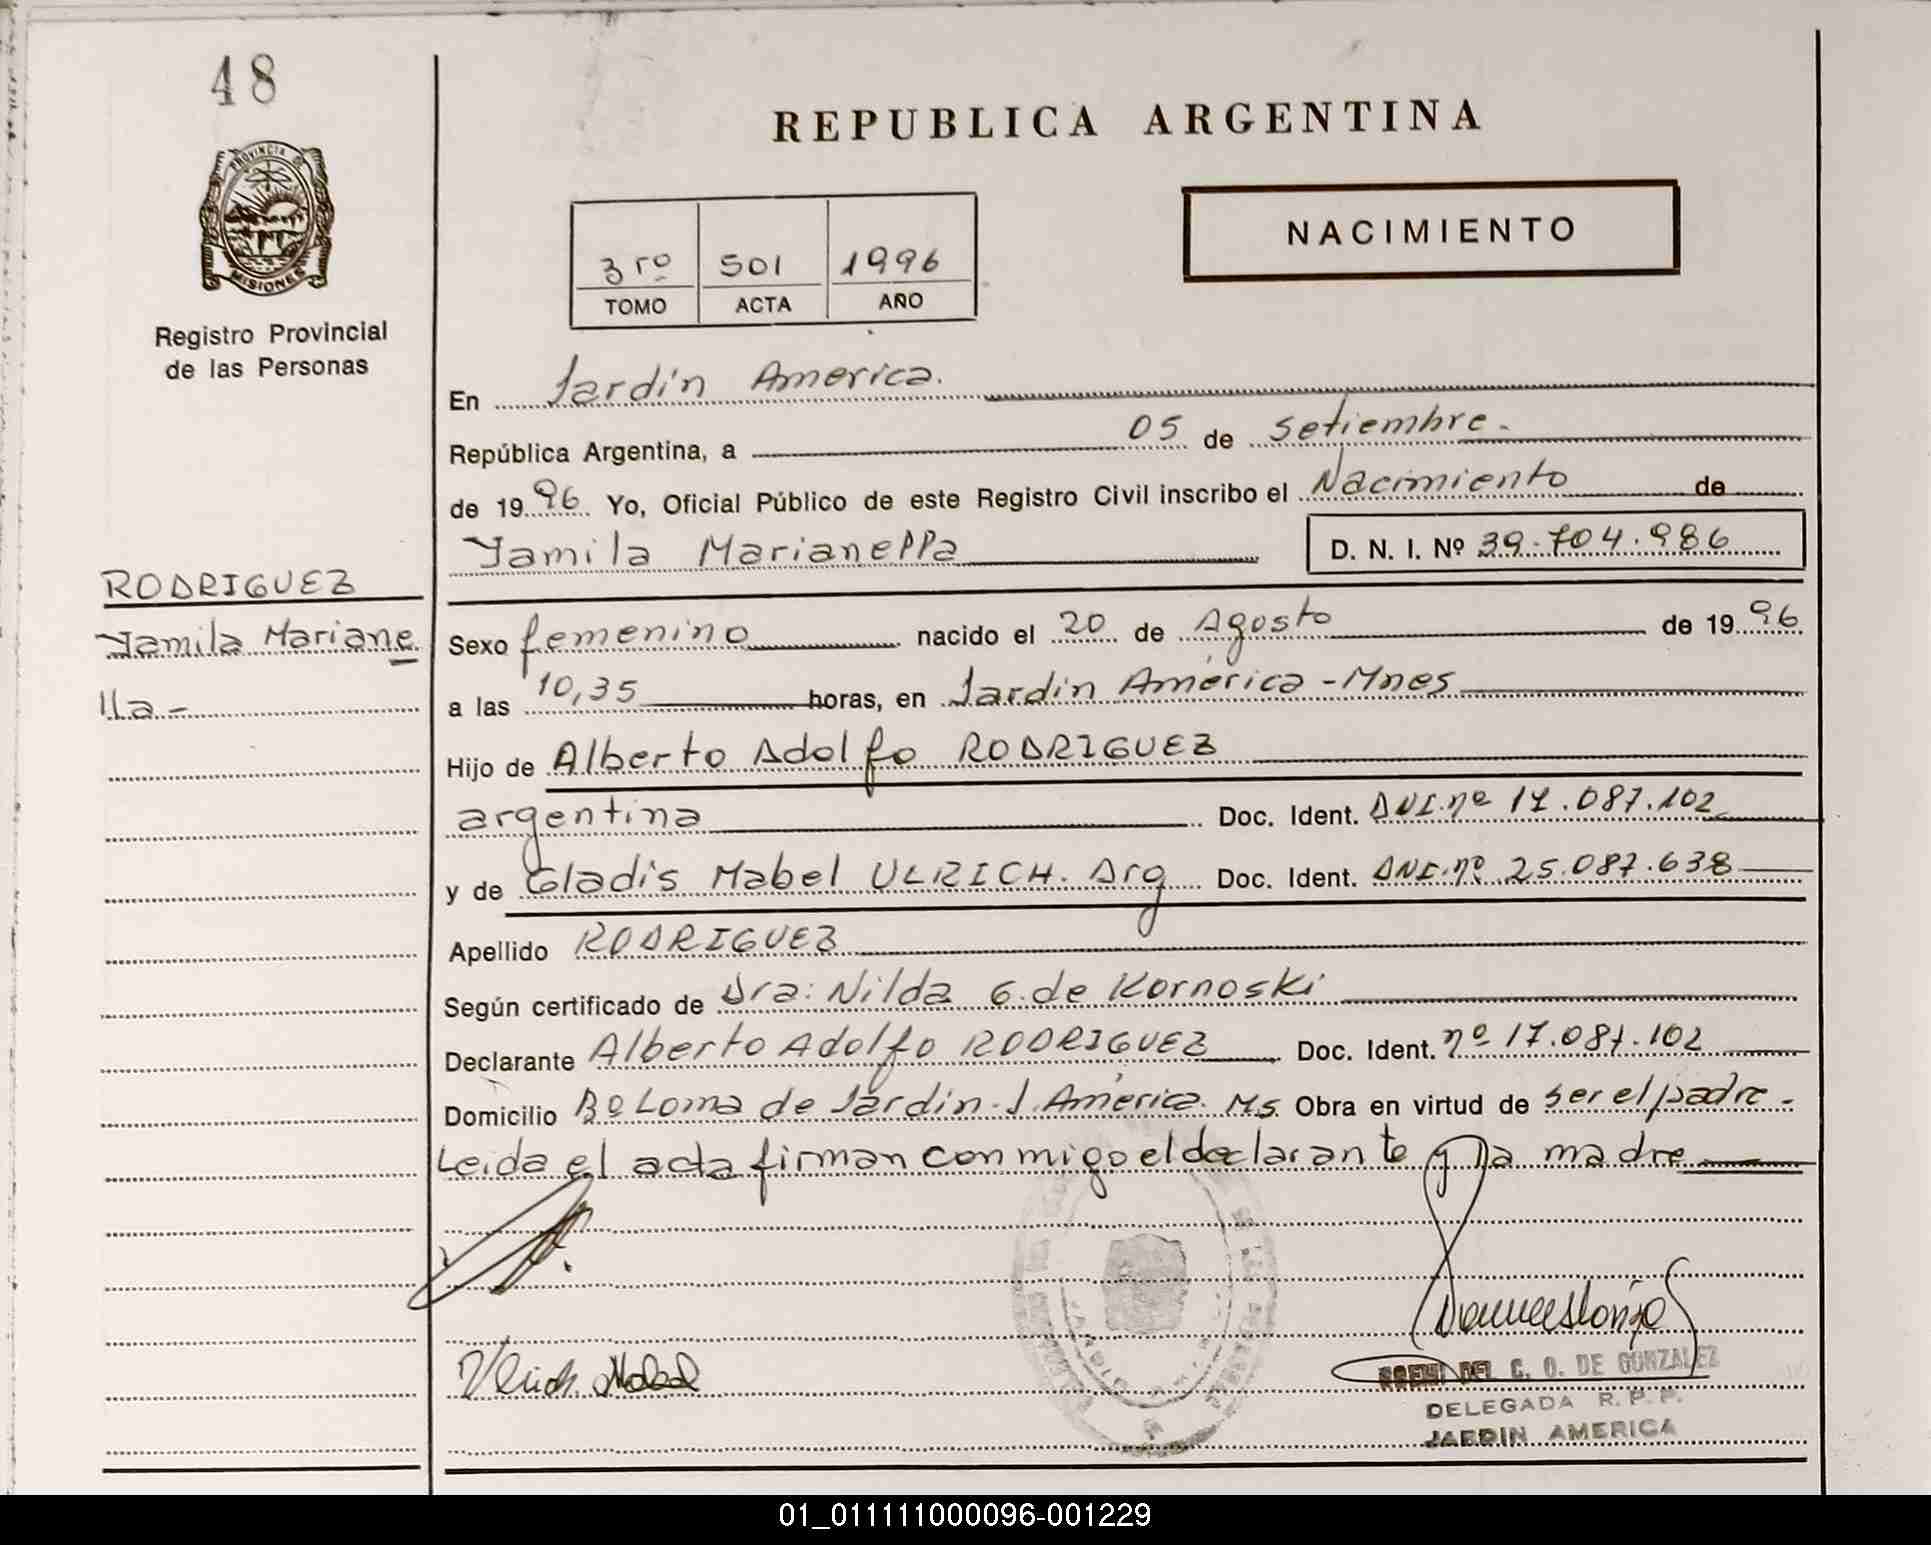 48
PROVINCIA DE
MISIONES
Registro Provincial
de las Personas
REPUBLICA ARGENTINA
NACIMIENTO
3ro 501 1996
TOMO ACTA AÑO
En Jardín America.
República Argentina, a 05 de Setiembre.
de 1996 Yo, Oficial Público de este Registro Civil inscribo el Nacimiento de
Yamila Marianella D. N. I. Nº 39.704.986
RODRIGUEZ
Yamila Mariane
lla-
Sexo femenino nacido el 20 de Agosto de 1996
a las 10,35 horas, en Jardín América - Mnes
Hijo de Alberto Adolfo RODRIGUEZ
argentina Doc. Ident. DNI.nº 17.087.102
y de Gladis Mabel ULRICH. Arg Doc. Ident. DNI.nº 25.087.638
Apellido RODRIGUEZ
Según certificado de Dra: Nilda G. de Kornoski
Declarante Alberto Adolfo RODRIGUEZ Doc. Ident. nº 17.087.102
Domicilio Bº Loma de Jardín. J. América. Ms. Obra en virtud de ser el padre -
Leida el acta firman conmigo el declarante y la madre
Ulrich Mabel
DEL C. O. DE GONZALEZ
DELEGADA R. P. P.
JARDIN AMERICA
01_011111000096-001229